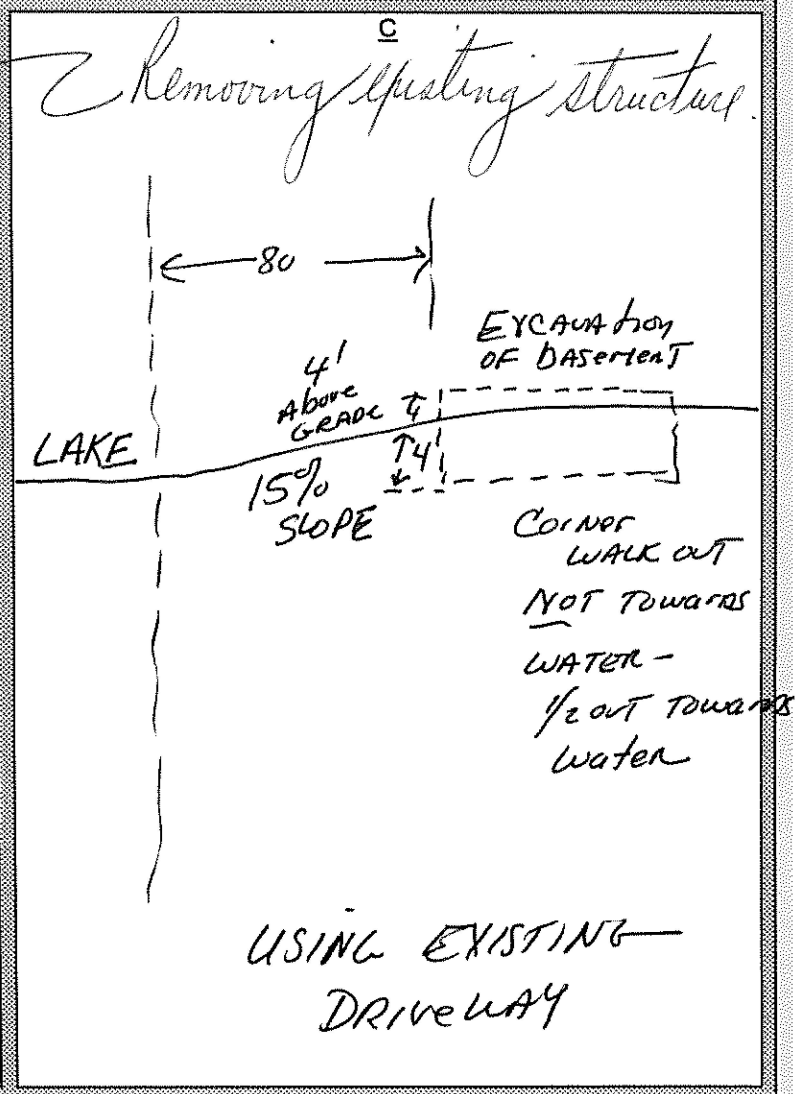 C
Removing existing structure.
80
EXCAVATION
OF BASEMENT
4'
Above
GRADE 4
4'
LAKE
15%
SLOPE
Corner
WALK OUT
NOT Towards
WATER -
1/2 out Towards
Water
USING EXISTING
DRIVEWAY